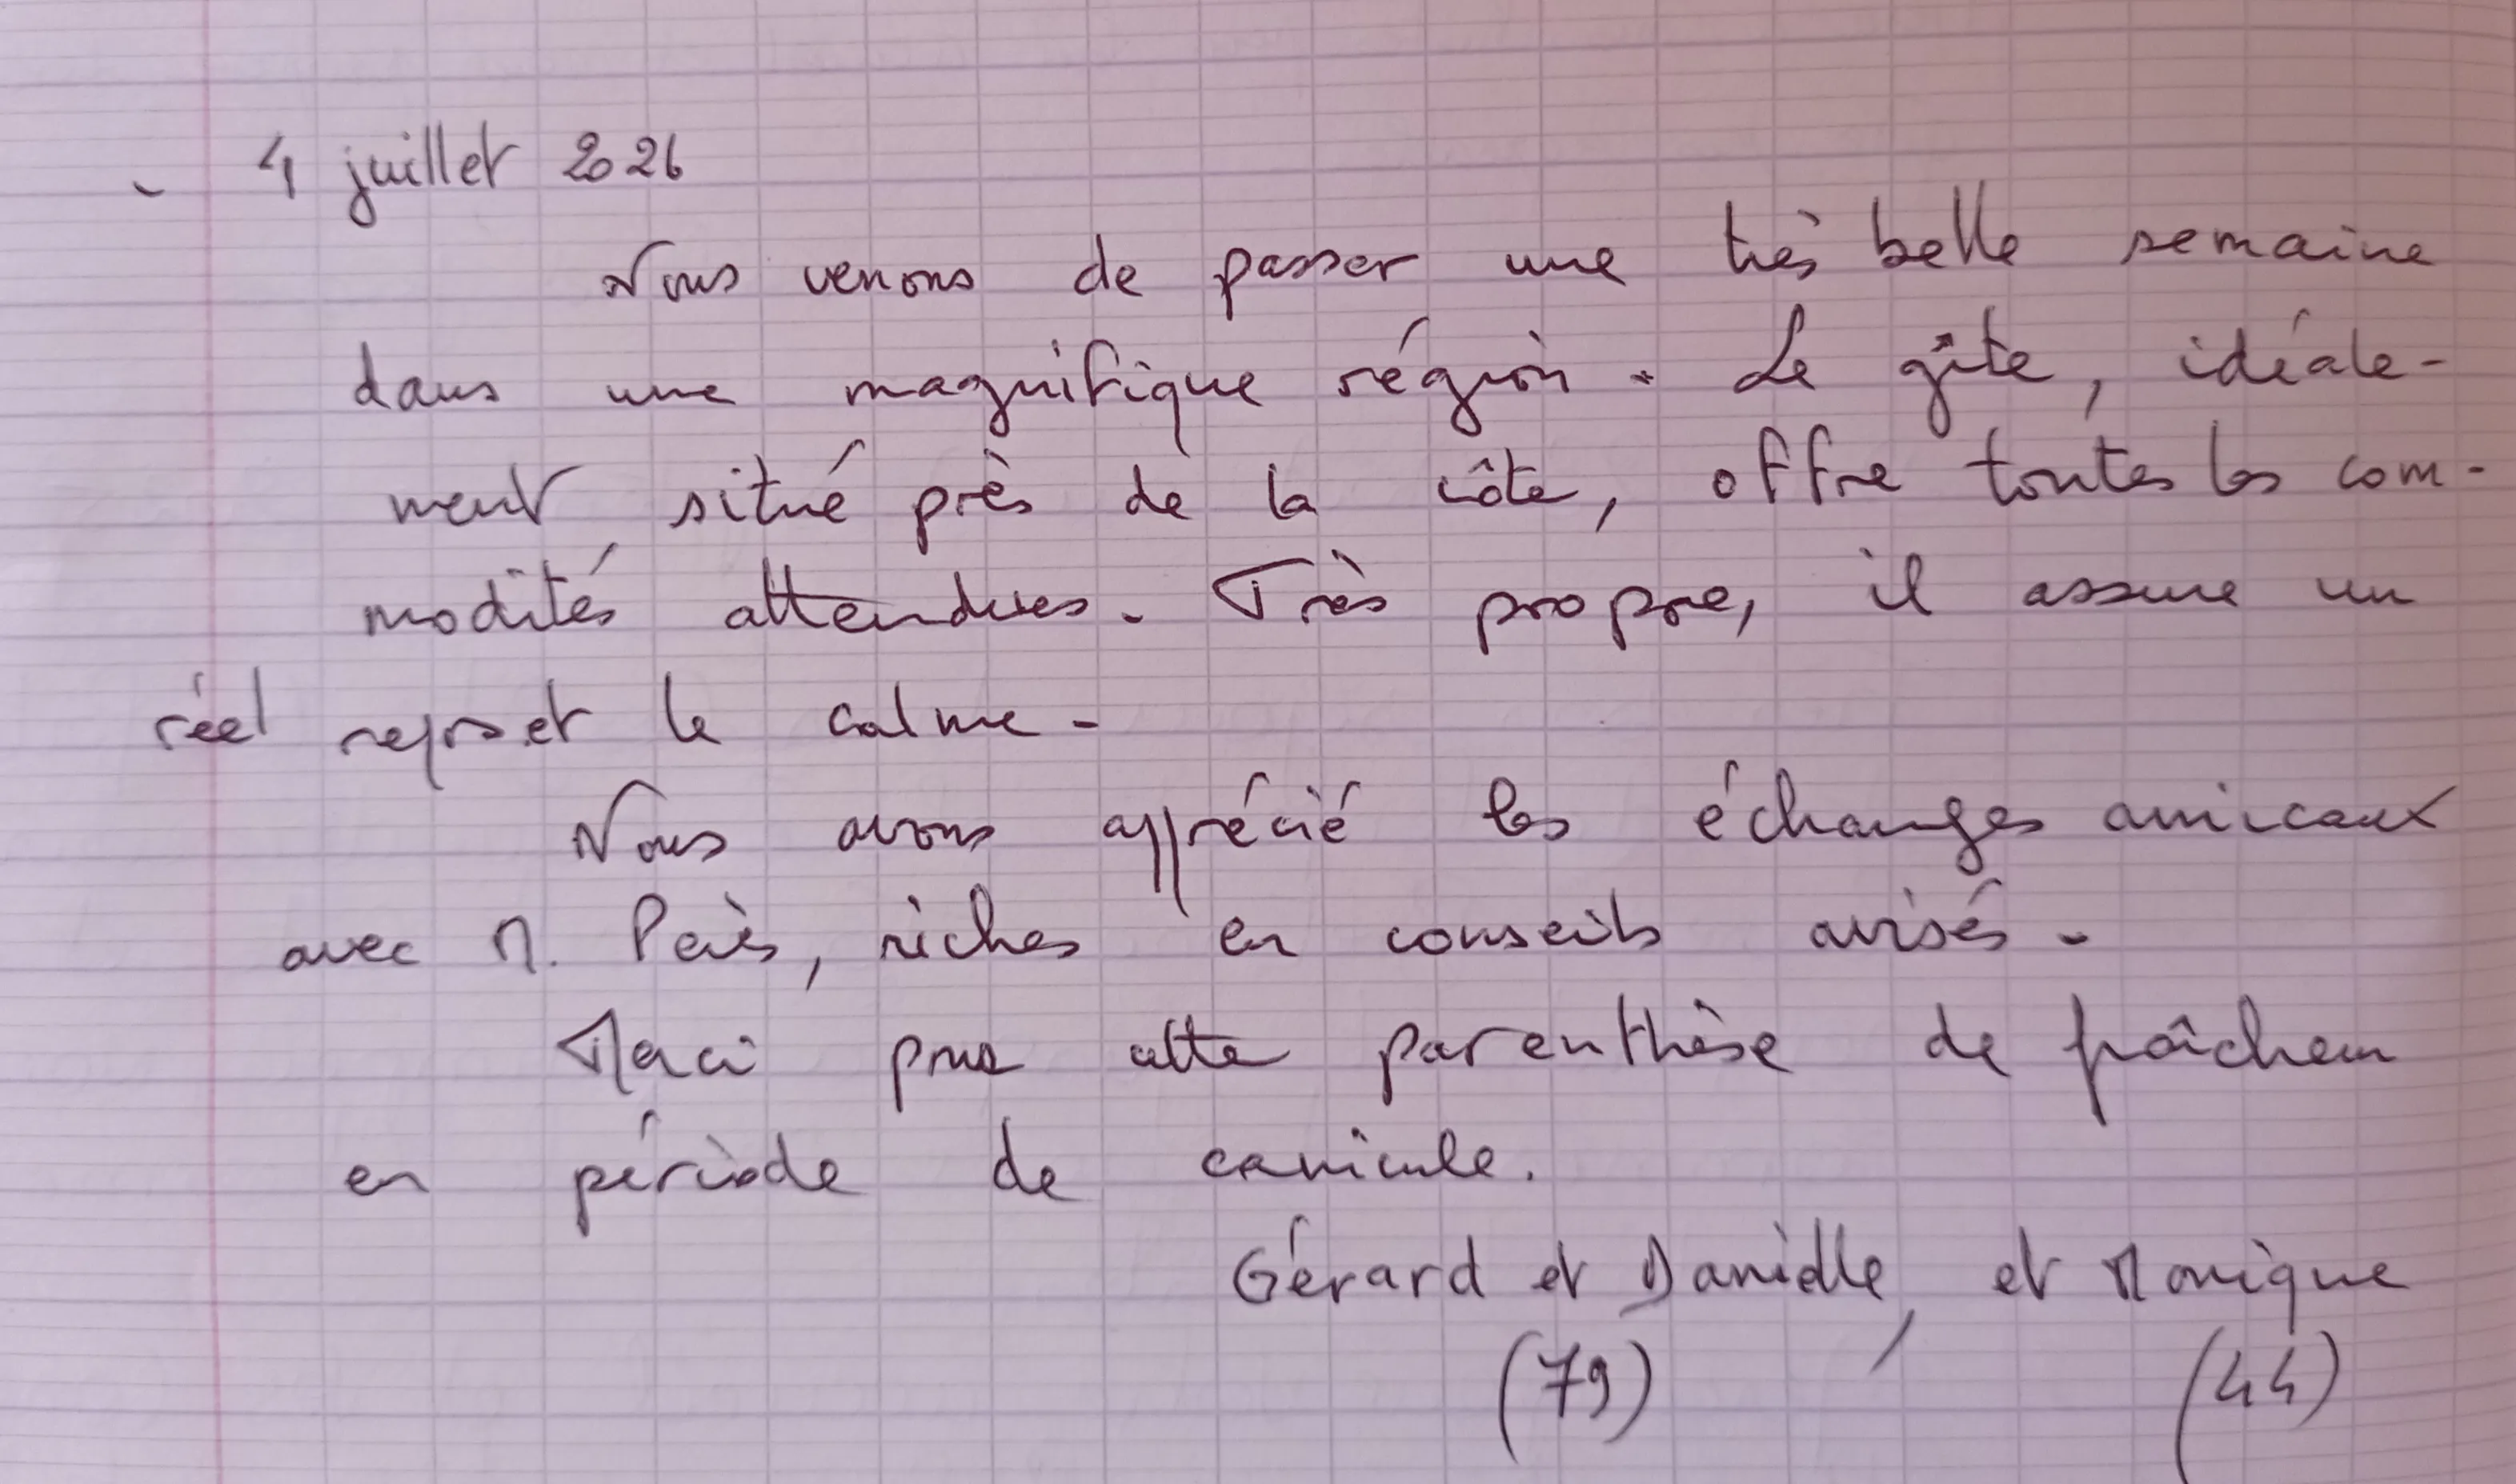 - 4 juillet 2026
Nous venons de passer une très belle semaine
dans une magnifique région. Le gîte, idéale-
ment situé près de la côte, offre toutes les com-
modités attendues. Très propre, il assure un
réel repos et le calme -
Nous avons apprécié les échanges amicaux
avec M. , riches en conseils avisés -
Merci pour cette parenthèse de fraîcheur
en période de canicule.
Gérard et Danielle, et Monique
(79) / (44)